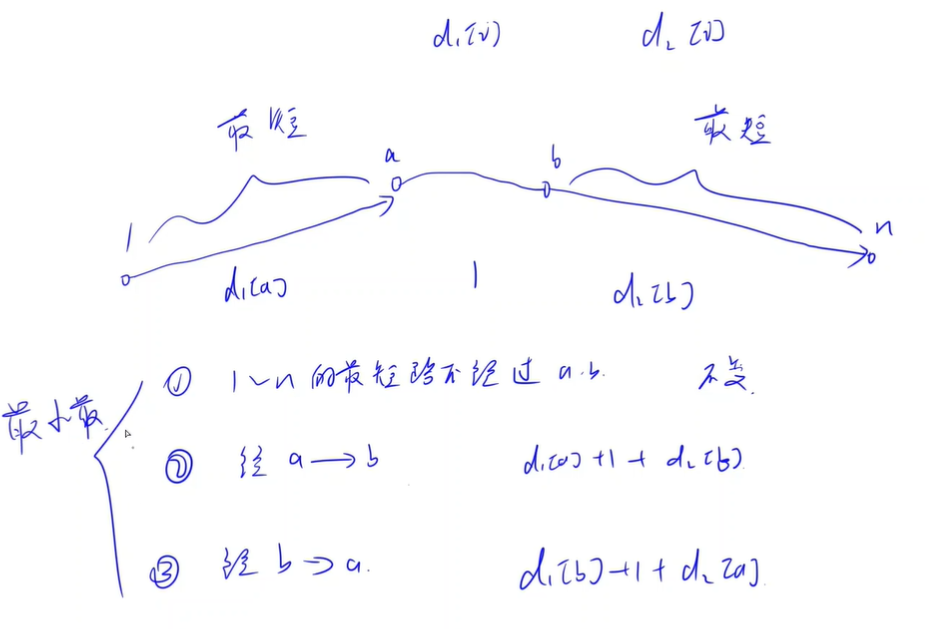 d₁[i] d₂[i]
最短 最短
a b
1 n
d₁[a] 1 d₂[b]
① 1~n的最短路不经过a.b. 不变.
② 经a→b d₁[a]+1+d₂[b]
③ 经b→a. d₁[b]+1+d₂[a]